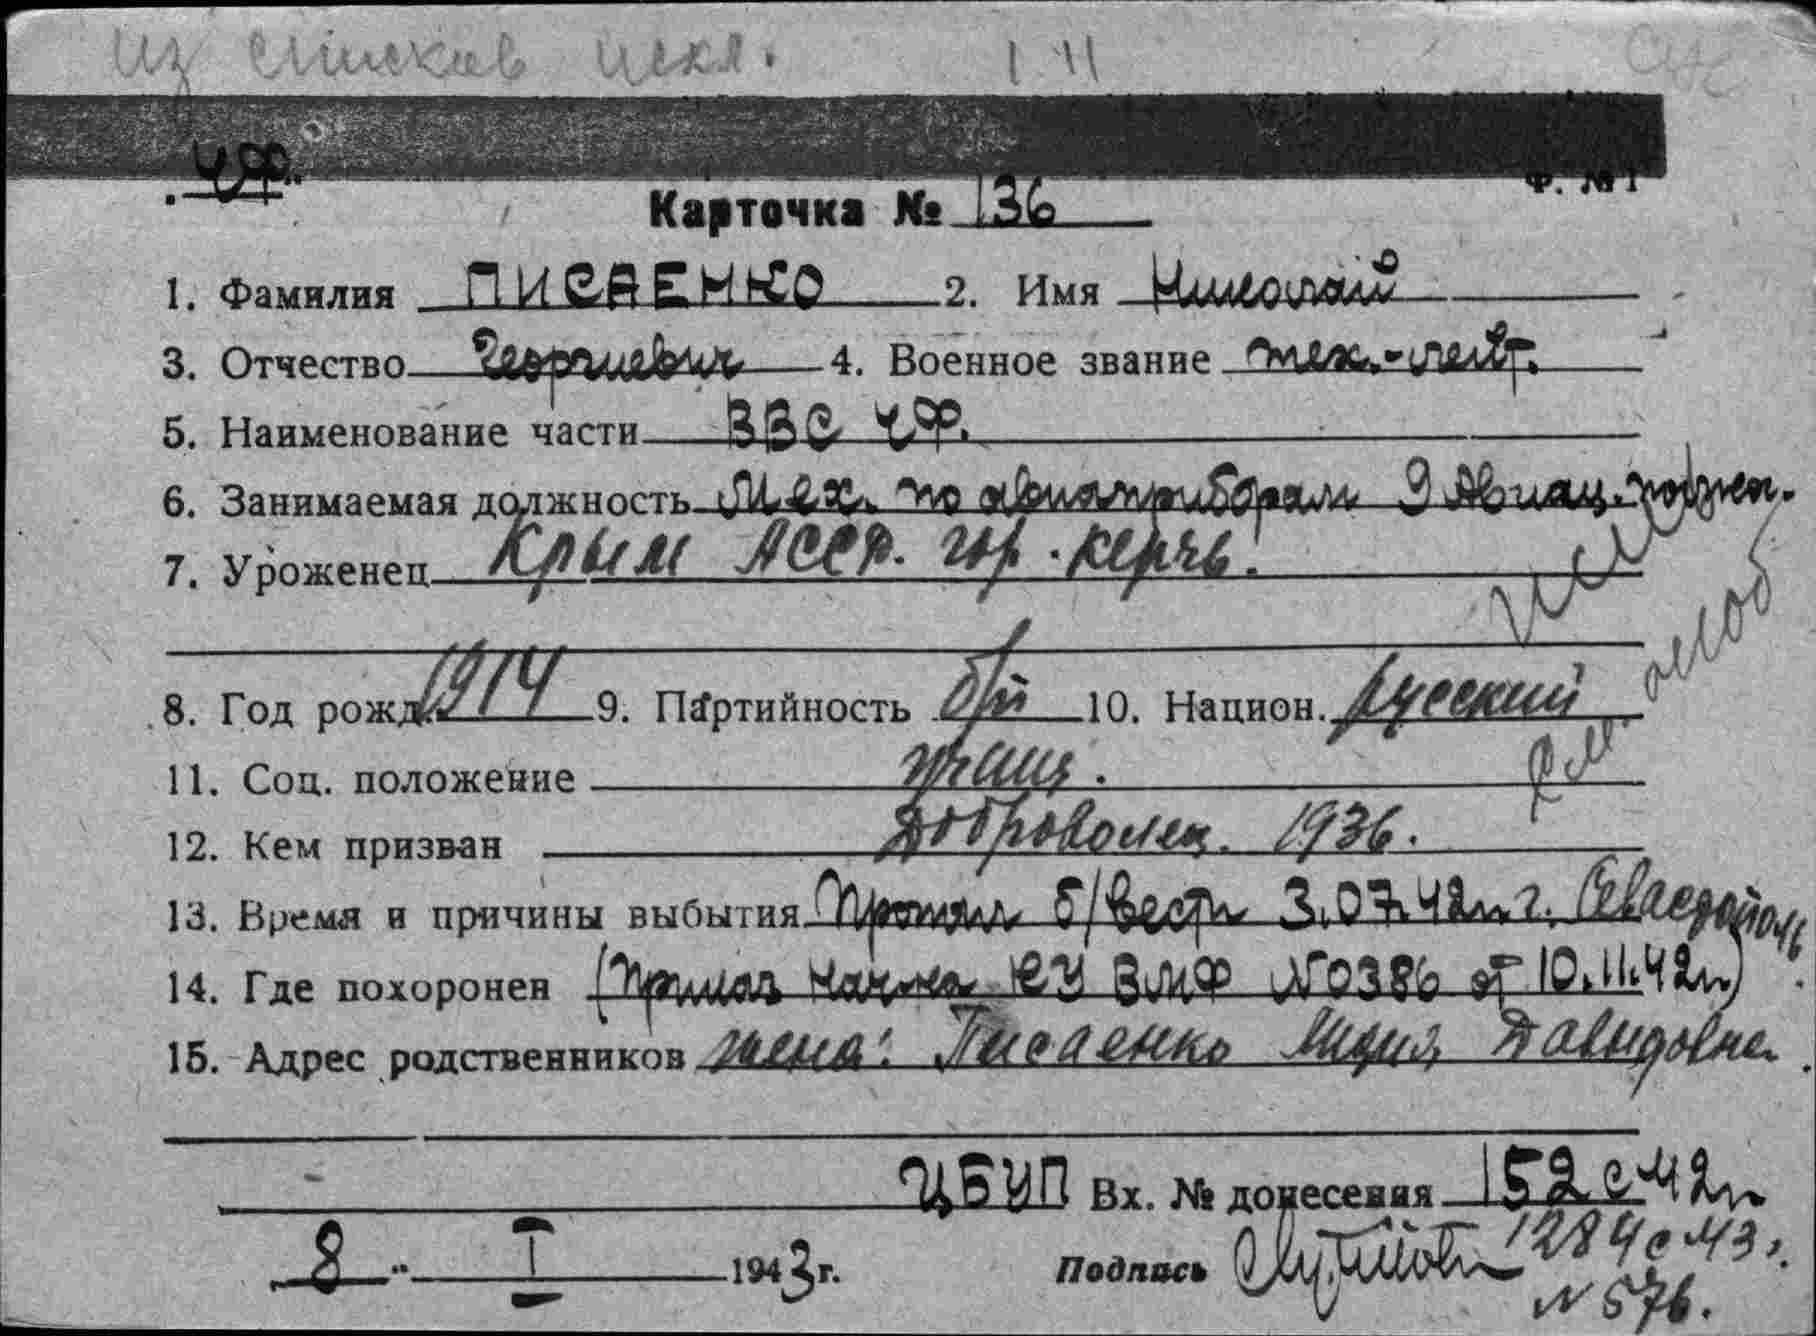 из списков искл. 1 11
ЧФ. Ф. №1
Карточка № 136
1. Фамилия ПИСАЕНКО 2. Имя Николай
3. Отчество Георгиевич 4. Военное звание тех.-лейт.
5. Наименование части ВВС ЧФ.
6. Занимаемая должность Мех. по авиаприборам 9 Авиац.
7. Уроженец Крым АССР. гор. Керчь.
8. Год рожд. 1914 9. Партийность б/п 10. Национ. русский
11. Соц. положение
12. Кем призван Доброволец. 1936.
13. Время и причины выбытия Пропал б/вести 3.07.42 г. Севастополь
14. Где похоронен (Приказ нач-ка КУ ВМФ №0386 от 10.11.42г)
15. Адрес родственников жена: Писаенко Давидовна
ЦБУП Вх. № донесения 152с 42г
8 " I 1943 г. Подпись 1284с 43г.
N 576.